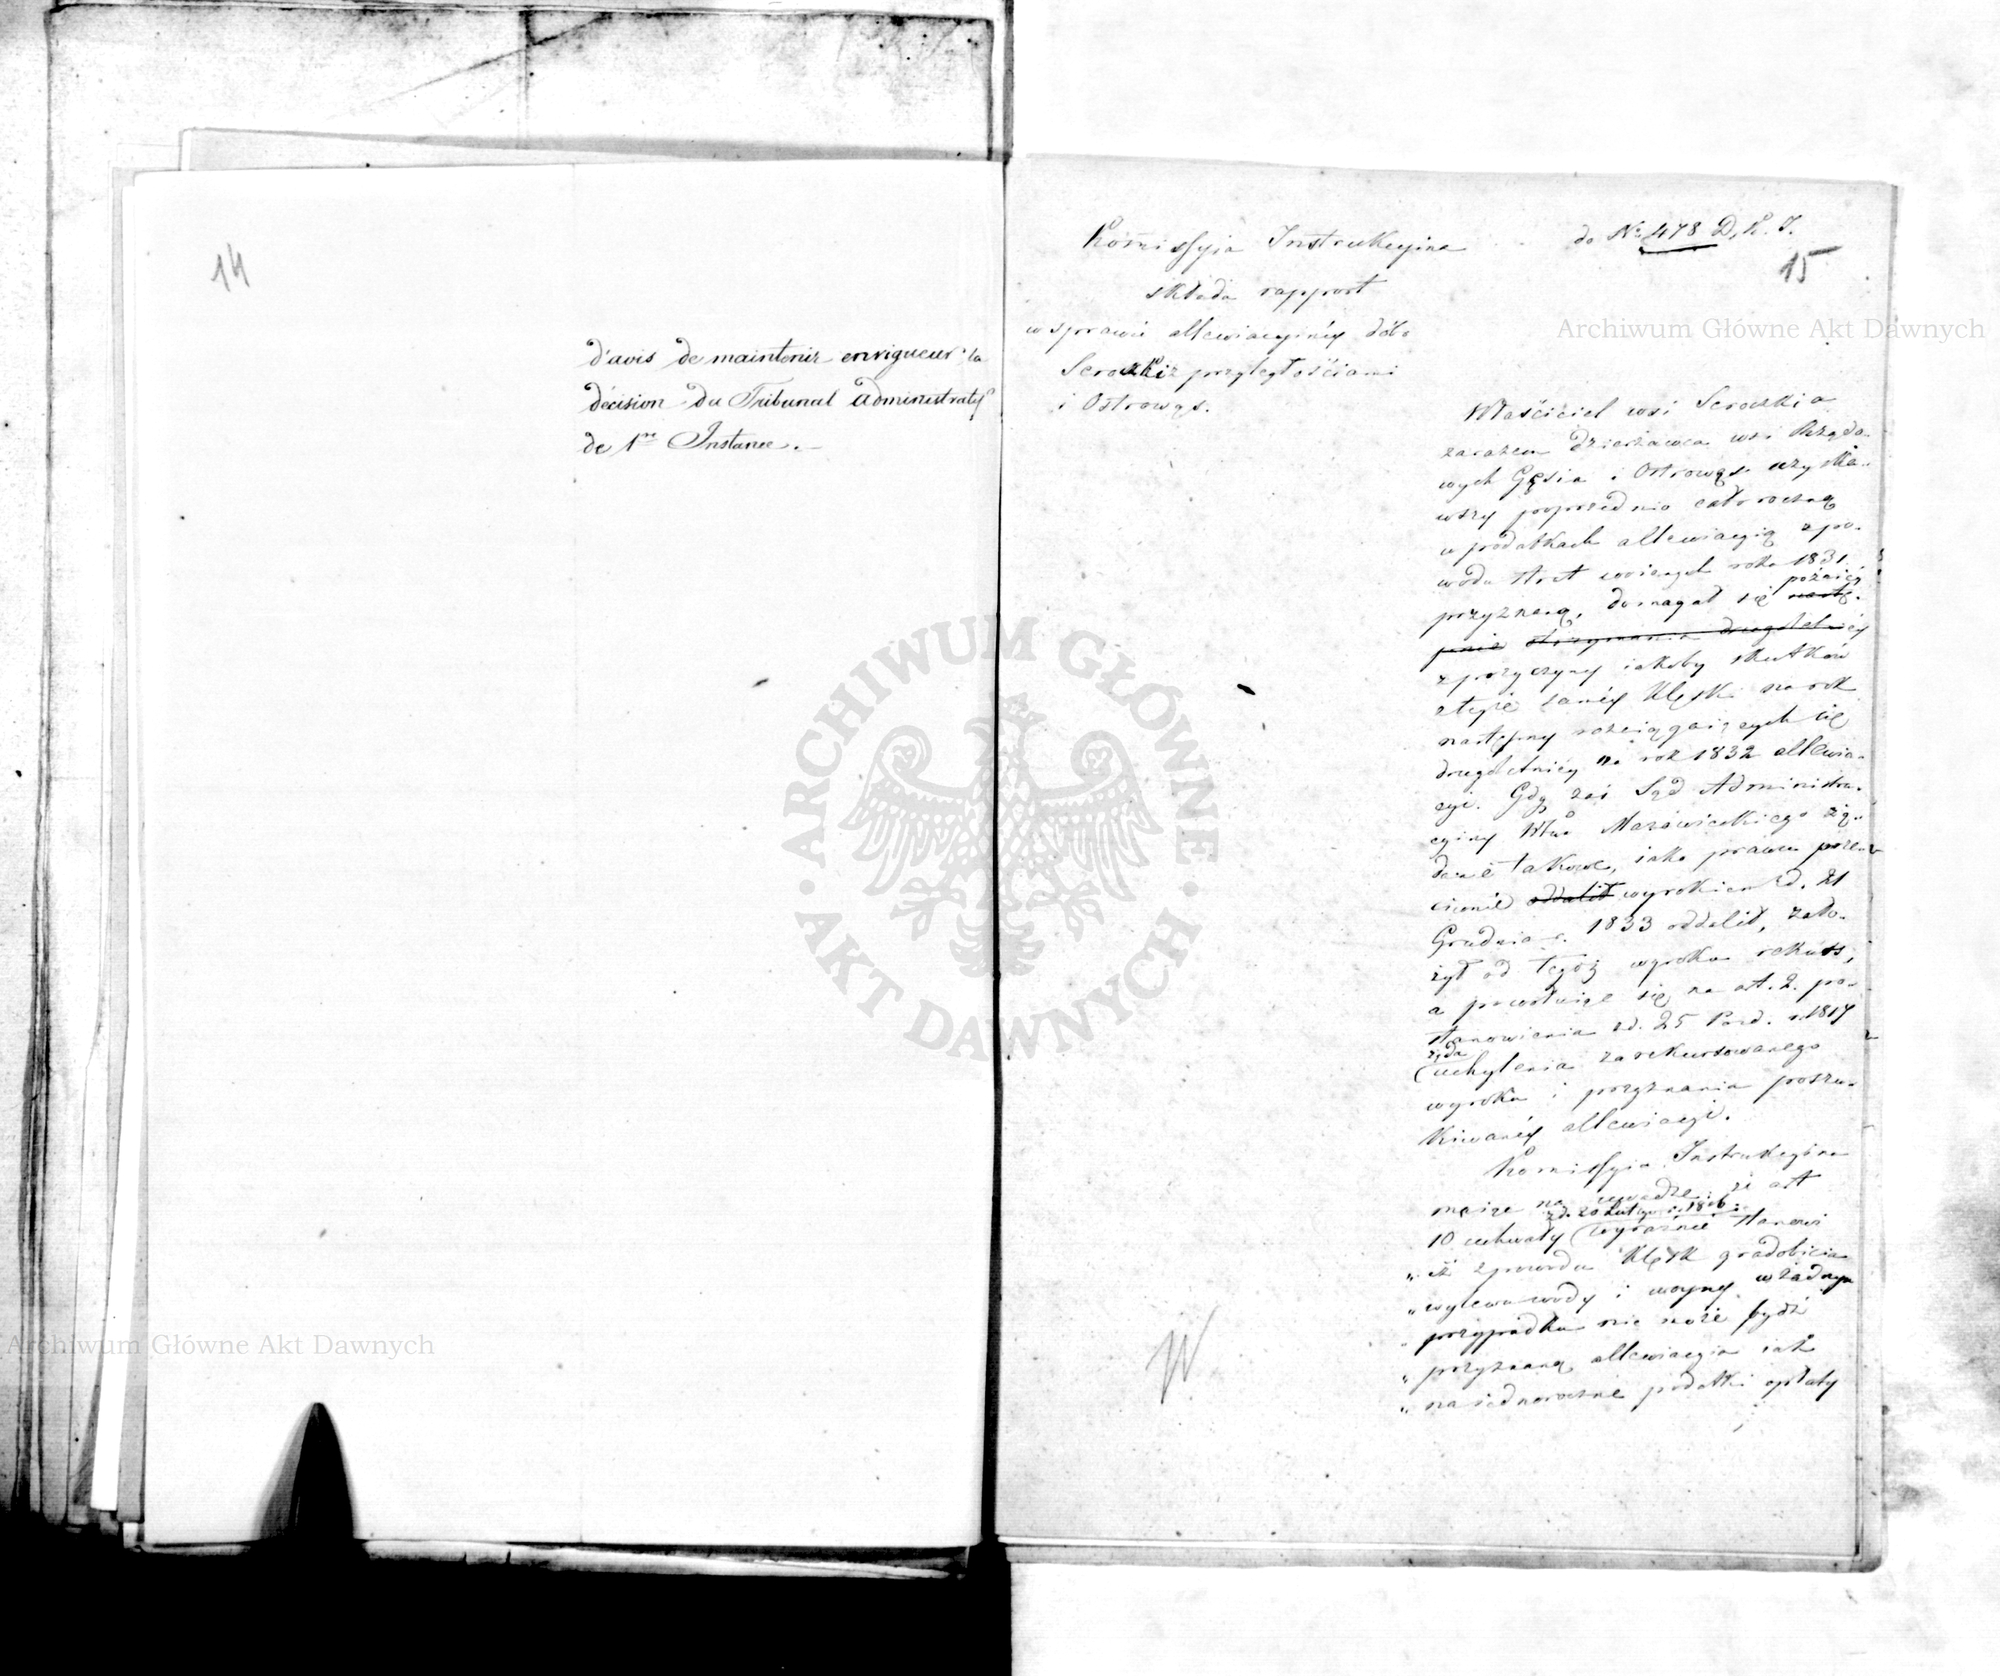 14
d'avis de maintenir en vigueur la
décision du Tribunal administratif
de 1re Instance.
do No 478 D. K. I.
15
Kommissyia Instrukcyina
składa rapport
w sprawie allewiacyinéy dóbr
Seroczki z przyległościami
i Ostrowąs.
Właściciel wsi Seroczki a
zarazem dzierżawca wsi Rządo-
wych Gęsia i Ostrowąs uzyska-
wszy poprzednio całoroczną
w podatkach allewiacyią z po-
wodu strat woiennych roku 1831
przyznaną, domagał się późniéy
pnie otrzymania drugoletniéy
z przyczyny iakoby skutków
z teyże saméy klęski na rok
następny rozciągaiących się
drugoletniéy na rok 1832 allewia-
cyi. Gdy zaś Sąd Administra-
cyiny Wtwa Mazowieckiego żą-
danie takowe, iako prawu prze-
ciwnie oddalił wyrokiem z d. 21
Grudnia r. 1833 oddalił, zało-
żył od tegóż wyroku rekurs,
a powołuiąc się na art. 2. po-
stanowienia z d. 25 Paźd. r. 1817
żąda
uchylenia zarekursowanego
wyroku i przyznania poszu-
kiwanéy allewiacyi.
Kommissyia Instrukcyina
maiąc na uwadze: że art
z d. 20 Lutego r. 1806
10 uchwały wyraźnie stanowi
" iż z powodu klęsk gradobicia
" wylewu wody i woyny w żadnym
" przypadku nie może bydź
" przyznaną allewiacyia iak
" na iednoroczne podatki opłaty
Archiwum Główne Akt Dawnych
Archiwum Główne Akt Dawnych
ARCHIWUM GŁÓWNE
· AKT DAWNYCH ·